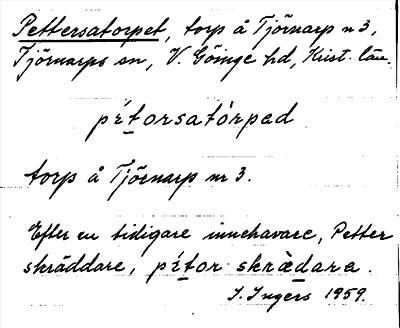 Pettersatorpet, torp å Tjörnarp n 3,
Tjörnarps sn, V. Göinge hd, Krist. län.
pétorsatórpad
torp å Tjörnarp nr 3.
Efter en tidigare innehavare, Petter
skräddare, pétor skrädara.
I. Ingers 1959.